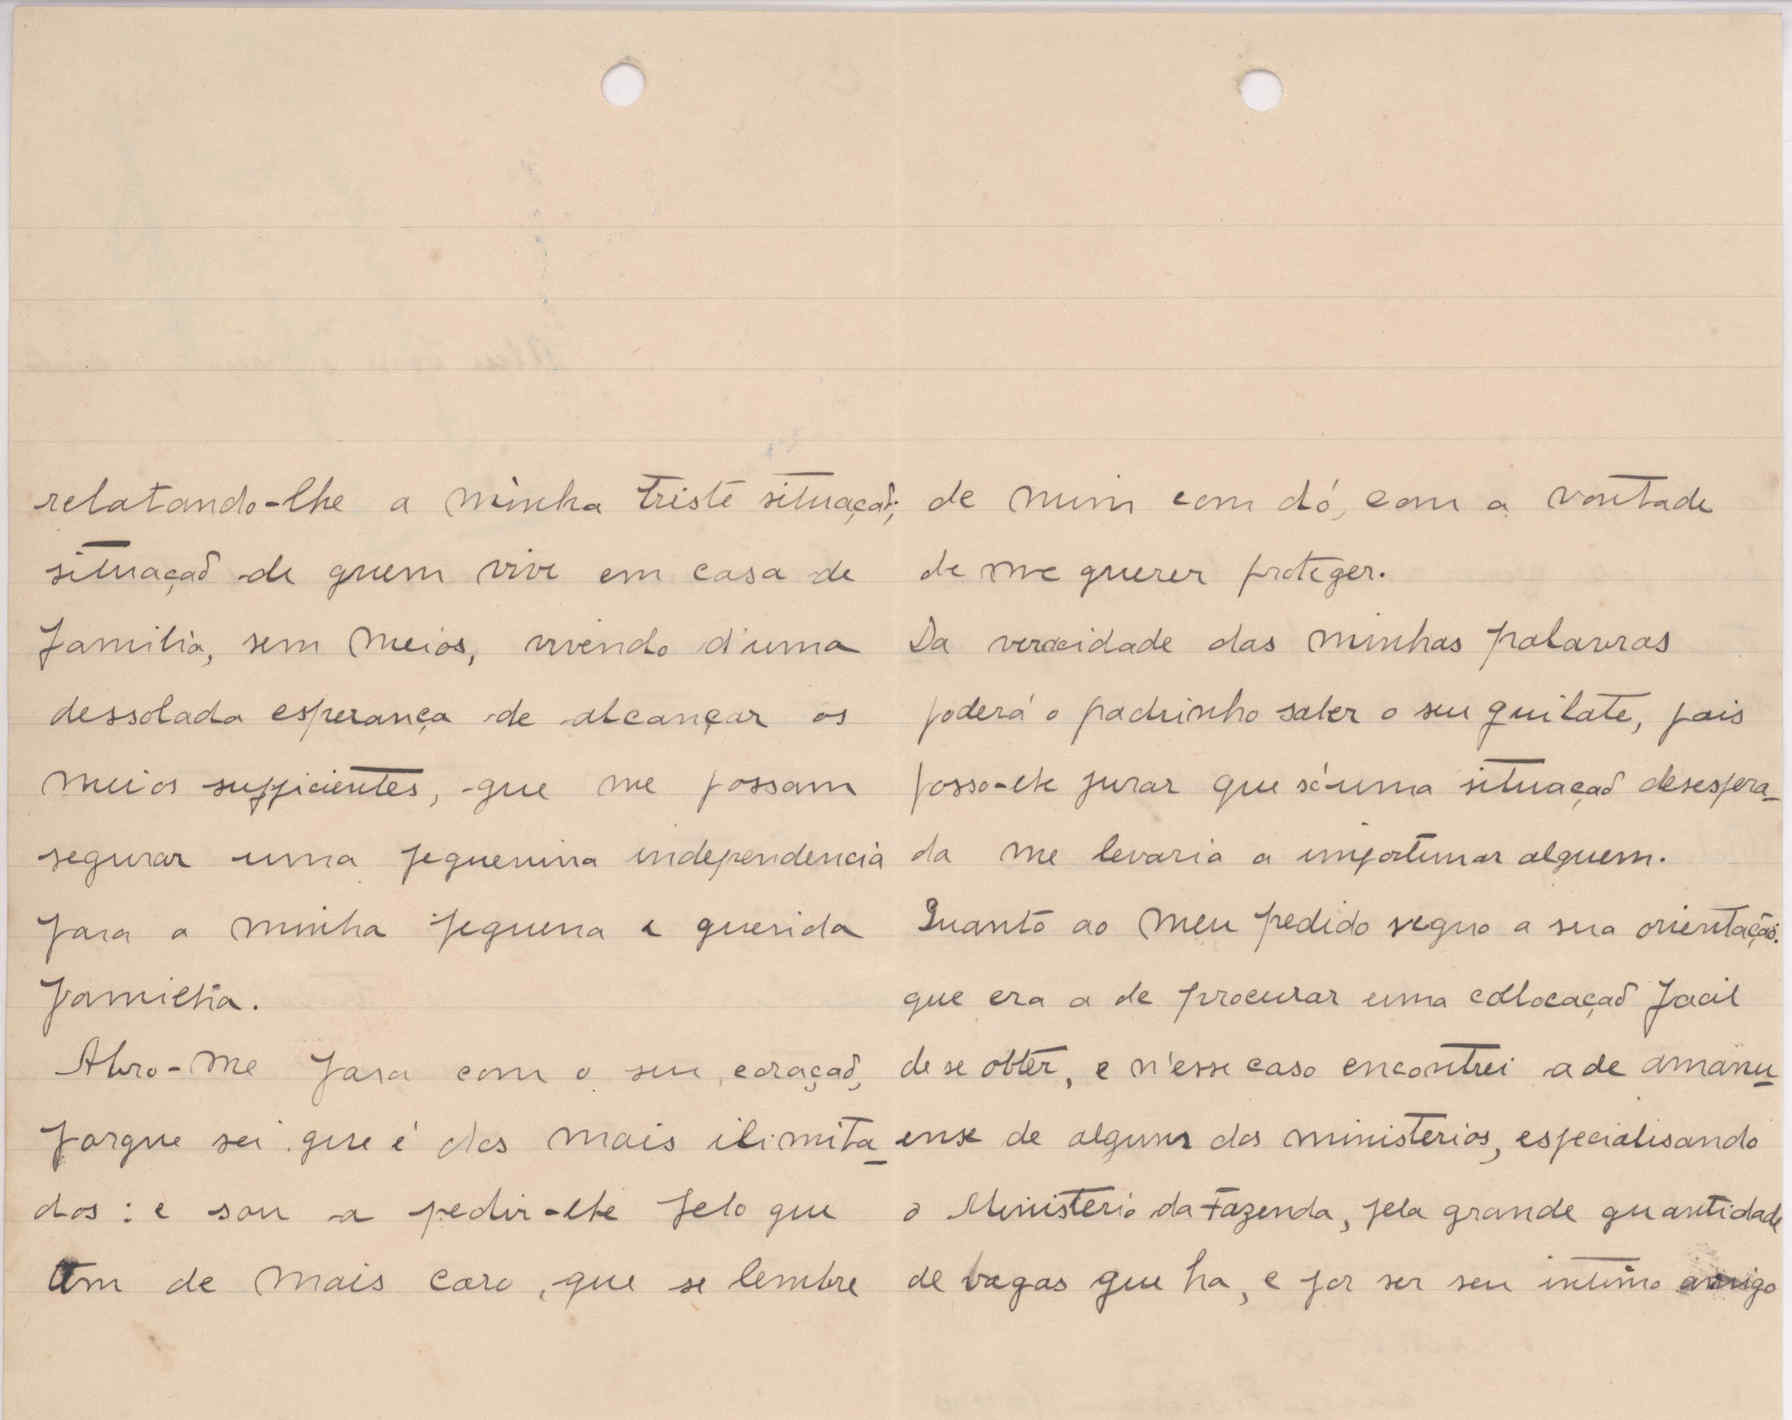 relatando-lhe a minha triste situação;
situação de quem vive em casa de
familia, sem meios, vivendo d'uma
dessolada esperança de alcançar os
meios sufficientes, que me possam
segurar uma pequenina independencia
para a minha pequena e querida
familia.
Abro-me para com o seu coração,
porque sei que é dos mais ilimita-
dos: e sou a pedir-lhe pelo que
tem de mais caro, que se lembre
de mim com dó, com a vontade
de me querer proteger.
Da veracidade das minhas palavras
poderá o padrinho saber o seu quilate, pois
posso-lhe jurar que só uma situação desespera-
da me levaria a importunar alguem.
Quanto ao meu pedido segno a sua orientação.
que era a de procurar uma collocação facil
de se obter, e n'esse caso encontrei a de amanu-
ense de algum dos ministerios, especialisando
o Ministerio da Fazenda, pela grande quantidade
de vagas que ha, e por ser seu intimo amigo